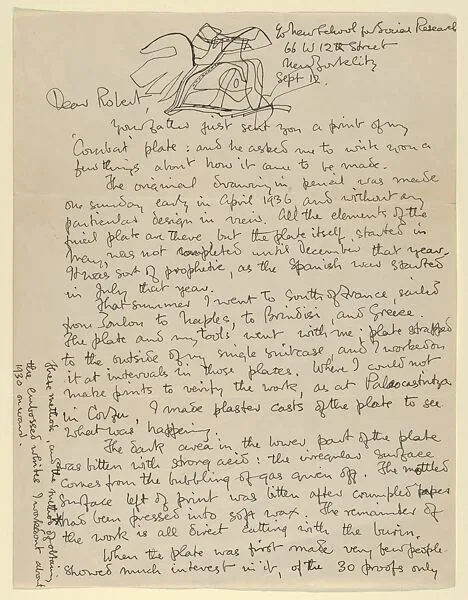 c/o New School for Social Research
66 W 12th Street
New York City
Sept 12
Dear Robert,
Your father just sent you a print of my
'Combat' plate: and he asked me to write you a
few things about how it came to be made.
The original drawing in pencil was made
one sunday early in April 1936 and without any
particular design in view. All the elements of the
final plate are there but the plate itself, started in
May, was not completed until December that year.
It was sort of prophetic, as the Spanish war started
in July that year.
That summer I went to South of France, sailed
from Toulon to Naples, to Brindisi and Greece.
The plate and my tools went with me: plate strapped
to the outside of my single suitcase and I worked on
it at intervals in those places. Where I could not
make prints to verify the work, as at Paleocastritza
in Corfu, I made plaster casts of the plate to see
what was happening.
The dark area in the lower part of the plate
was bitten with strong acid: the irregular surface
comes from the bubbling of gas given off. The mottled
surface left of print was bitten after crumpled paper
had been pressed into soft wax. The remainder of
the work is all direct cutting with the burin.
When the plate was first made very few people
showed much interest in it, of the 30 proofs only
These methods, and the method of obtaining
the embossed whites I worked out about
1930 onward.